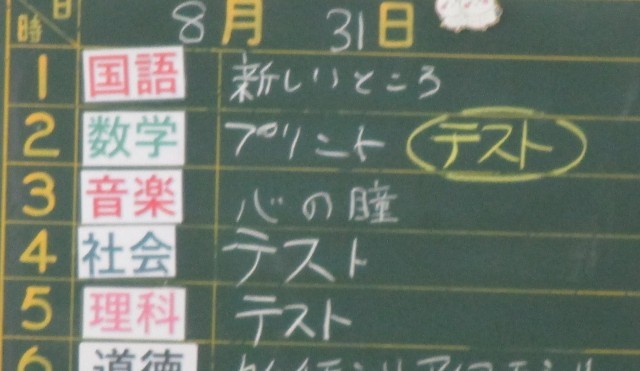 日
時
8月 31日
1 国語 新しいところ
2 数学 プリント テスト
3 音楽 心の瞳
4 社会 テスト
5 理科 テスト
6 道徳